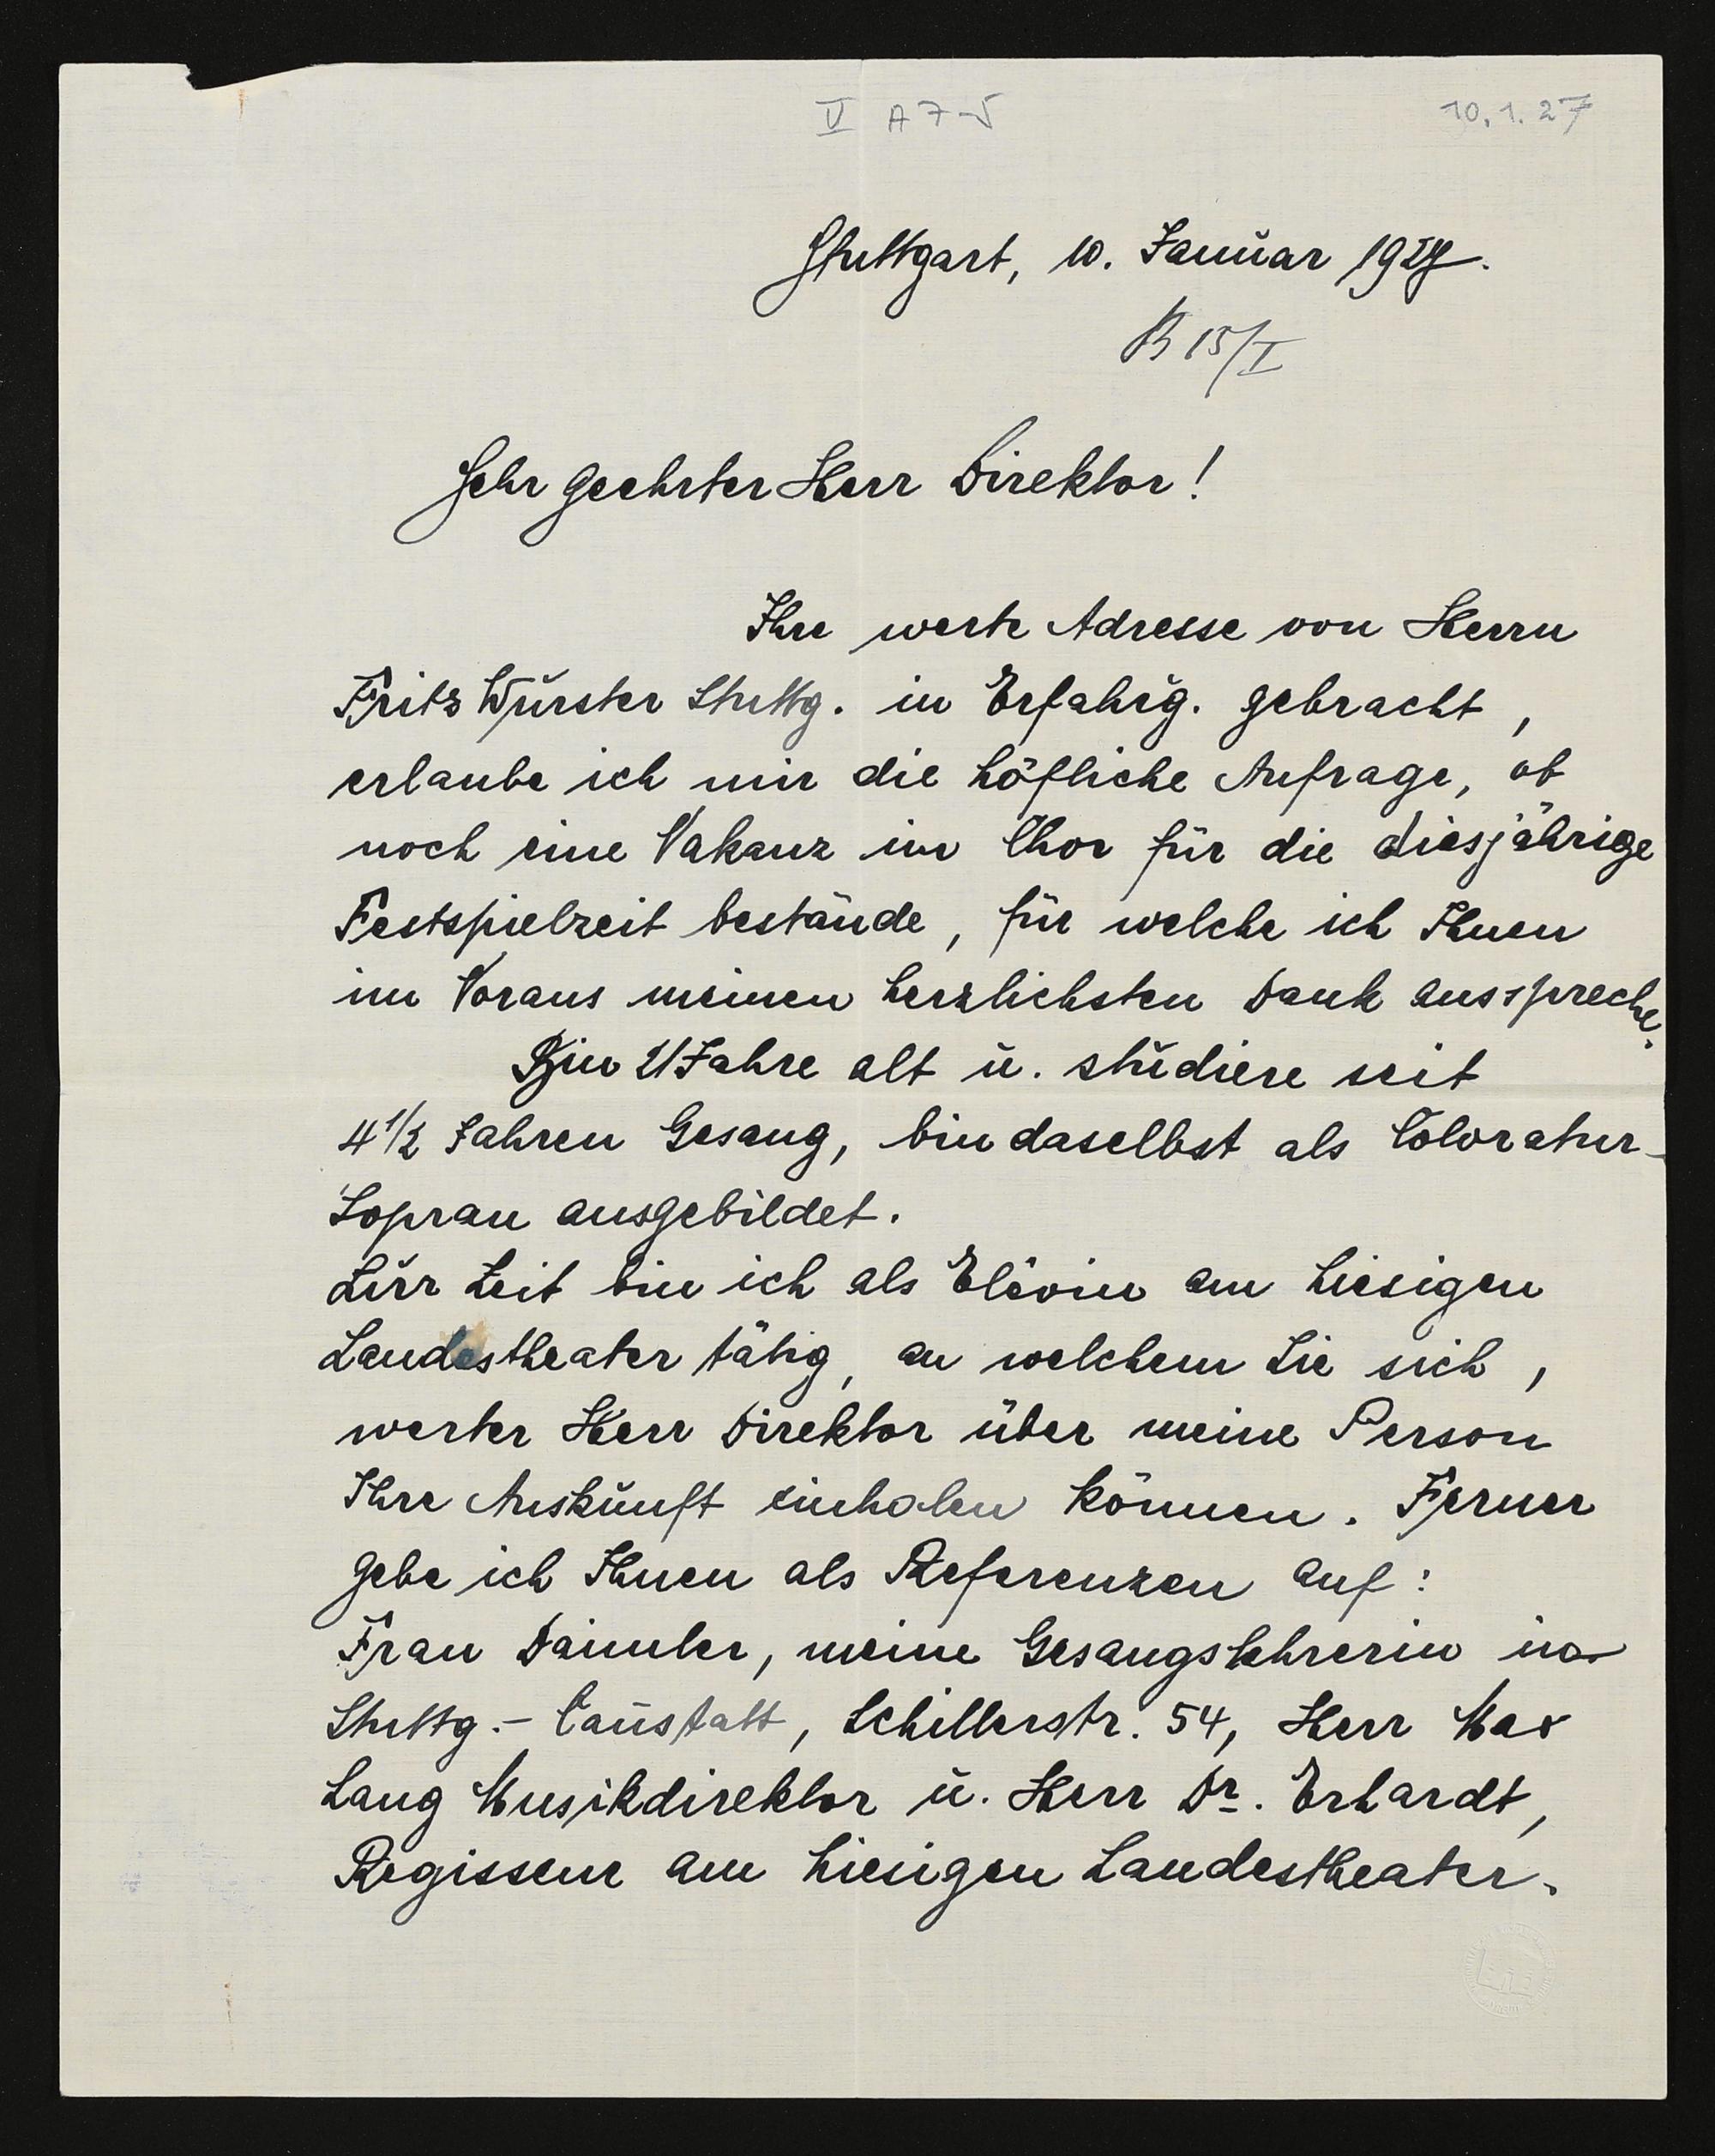 V A 7-5
10.1.27
Stuttgart, 10. Januar 1927.
B 15/I
Sehr geehrter Herr Direktor!
Ihre werte Adresse von Herrn
Fritz Wurster Stuttg. in Erfahrg. gebracht,
erlaube ich mir die höfliche Anfrage, ob
noch eine Vakanz im Chor für die diesjährige
Festspielzeit bestände, für welche ich Ihnen
im Voraus meinen herzlichsten Dank ausspreche.
Bin 21 Jahre alt u. studiere seit
4 1/2 Jahren Gesang, bin daselbst als Coloratur-
Sopran ausgebildet.
Zur Zeit bin ich als Elevin am hiesigen
Landestheater tätig, an welchem Sie sich,
werter Herr Direktor über meine Person
Ihre Auskunft einholen können. Ferner
gebe ich Ihnen als Referenzen auf:
Frau Daimler, meine Gesangslehrerin in
Stuttg.- Canstatt, Schillerstr. 54, Herr Max
Lang Musikdirektor u. Herr Dr. Erhardt,
Regisseur am hiesigen Landestheater.